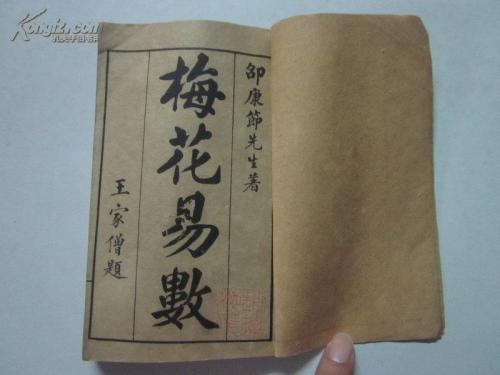 邵康節先生著
梅花易數
王家僧題
Kongfz.com
孔夫子旧书网